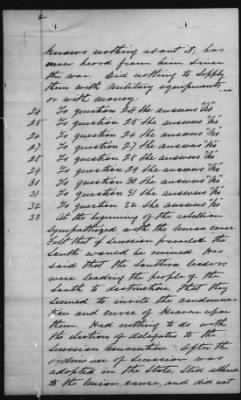 knows nothing about it, has
never heard from him since
the war. Did nothing to supply
them with military equipments
or with money.
24 To question 24 she answers "No"
25 To question 25 she answers "No"
26 To question 26 she answers "No"
27 To question 27 she answers "No"
28 To question 28 she answers "No"
29 To question 29 she answers "No"
30 To question 30 she answers "No"
31 To question 31 she answers "No"
32 To question 32 she answers "No"
33 At the beginning of the rebellion
sympathized with the Union cause
Felt that if secession prevailed the
South would be ruined. He
said that the Southern leaders
were leading the people of the
South to destruction. That they
seemed to invite the condemna-
tion and curse of Heaven upon
them. Had nothing to do with
the election of delegates to the
Secession Convention. After the
ordinance of Secession was
adopted in the State, still adhered
to the Union cause, and did not